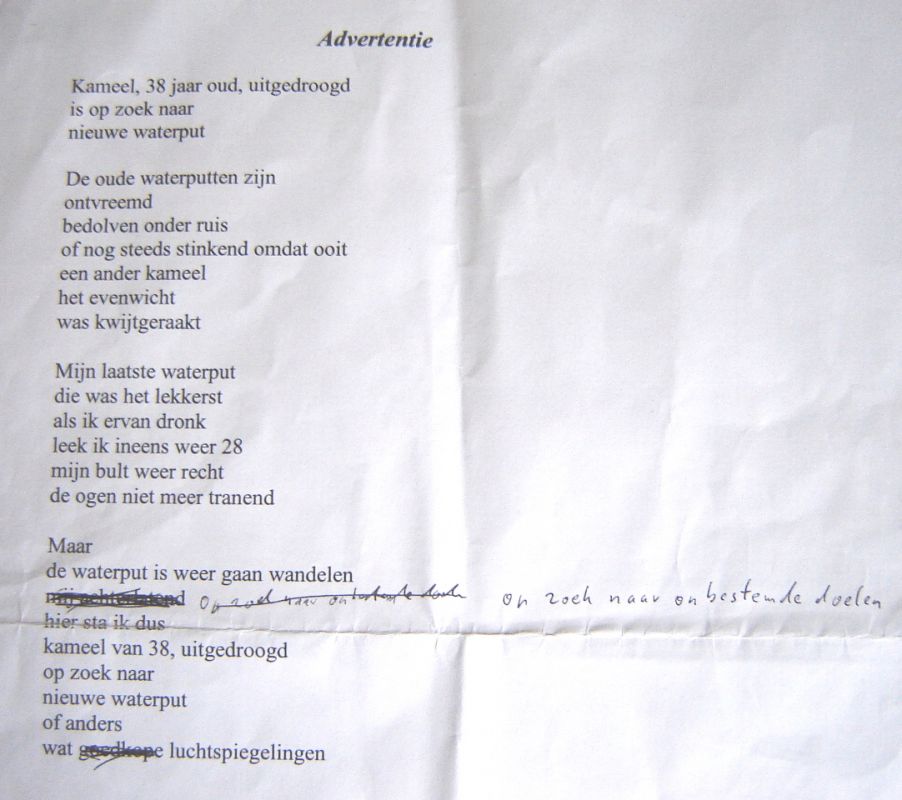 Advertentie
Kameel, 38 jaar oud, uitgedroogd
is op zoek naar
nieuwe waterput
De oude waterputten zijn
ontvreemd
bedolven onder ruis
of nog steeds stinkend omdat ooit
een ander kameel
het evenwicht
was kwijtgeraakt
Mijn laatste waterput
die was het lekkerst
als ik ervan dronk
leek ik ineens weer 28
mijn bult weer recht
de ogen niet meer tranend
Maar
de waterput is weer gaan wandelen
mij achterlatend op zoek naar onbestemde doelen op zoek naar onbestemde doelen
hier sta ik dus
kameel van 38, uitgedroogd
op zoek naar
nieuwe waterput
of anders
wat goedkope luchtspiegelingen